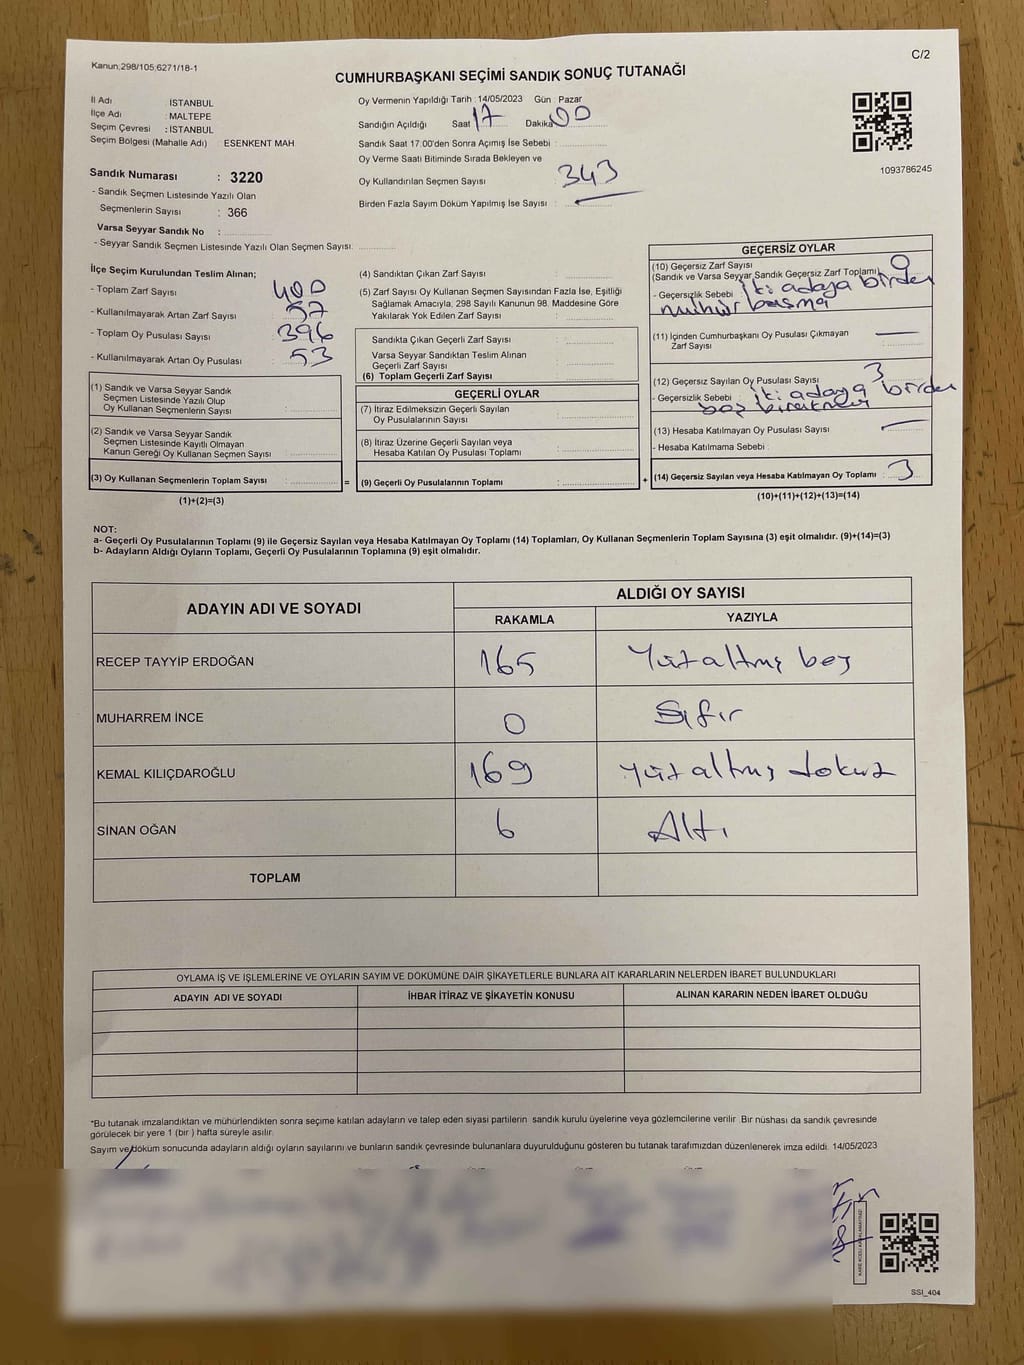 Kanun,298/105,6271/18-1
C/2
CUMHURBAŞKANI SEÇİMİ SANDIK SONUÇ TUTANAĞI
İl Adı : İSTANBUL
İlçe Adı : MALTEPE
Seçim Çevresi : İSTANBUL
Seçim Bölgesi (Mahalle Adı) ESENKENT MAH
Sandık Numarası : 3220
- Sandık Seçmen Listesinde Yazılı Olan
Seçmenlerin Sayısı : 366
Varsa Seyyar Sandık No :
- Seyyar Sandık Seçmen Listesinde Yazılı Olan Seçmen Sayısı:
Oy Vermenin Yapıldığı Tarih : 14/05/2023 Gün Pazar
Sandığın Açıldığı Saat 17 Dakika 00
Sandık Saat 17.00'den Sonra Açımış İse Sebebi :
Oy Verme Saati Bitiminde Sırada Bekleyen ve
Oy Kullandırılan Seçmen Sayısı : 343
Birden Fazla Sayım Döküm Yapılmış İse Sayısı :
1093786245
İlçe Seçim Kurulundan Teslim Alınan;
- Toplam Zarf Sayısı : 400
- Kullanılmayarak Artan Zarf Sayısı : 57
- Toplam Oy Pusulası Sayısı : 396
- Kullanılmayarak Artan Oy Pusulası : 53
(1) Sandık ve Varsa Seyyar Sandık
Seçmen Listesinde Yazılı Olup
Oy Kullanan Seçmenlerin Sayısı :
(2) Sandık ve Varsa Seyyar Sandık
Seçmen Listesinde Kayıtlı Olmayan
Kanun Gereği Oy Kullanan Seçmen Sayısı :
(3) Oy Kullanan Seçmenlerin Toplam Sayısı : =
(1)+(2)=(3)
(4) Sandıktan Çıkan Zarf Sayısı :
(5) Zarf Sayısı Oy Kullanan Seçmen Sayısından Fazla İse, Eşitliği
Sağlamak Amacıyla, 298 Sayılı Kanunun 98. Maddesine Göre
Yakılarak Yok Edilen Zarf Sayısı :
Sandıkta Çıkan Geçerli Zarf Sayısı :
Varsa Seyyar Sandıktan Teslim Alınan
Geçerli Zarf Sayısı :
(6) Toplam Geçerli Zarf Sayısı :
GEÇERLİ OYLAR
(7) İtiraz Edilmeksizin Geçerli Sayılan
Oy Pusulalarının Sayısı :
(8) İtiraz Üzerine Geçerli Sayılan veya
Hesaba Katılan Oy Pusulası Toplamı :
(9) Geçerli Oy Pusulalarının Toplamı : +
GEÇERSİZ OYLAR
(10) Geçersiz Zarf Sayısı 0
(Sandık ve Varsa Seyyar Sandık Geçersiz Zarf Toplamı)
- Geçersizlik Sebebi : iki adaya birden
mühür basma
(11) İçinden Cumhurbaşkanı Oy Pusulası Çıkmayan
Zarf Sayısı :
(12) Geçersiz Sayılan Oy Pusulası Sayısı : 3
- Geçersizlik Sebebi : iki adaya birden
(13) Hesaba Katılmayan Oy Pusulası Sayısı :
- Hesaba Katılmama Sebebi :
(14) Geçersiz Sayılan veya Hesaba Katılmayan Oy Toplamı : 3
(10)+(11)+(12)+(13)=(14)
NOT:
a- Geçerli Oy Pusulalarının Toplamı (9) ile Geçersiz Sayılan veya Hesaba Katılmayan Oy Toplamı (14) Toplamları, Oy Kullanan Seçmenlerin Toplam Sayısına (3) eşit olmalıdır. (9)+(14)=(3)
b- Adayların Aldığı Oyların Toplamı, Geçerli Oy Pusulalarının Toplamına (9) eşit olmalıdır.
ADAYIN ADI VE SOYADI ALDIĞI OY SAYISI
RAKAMLA YAZIYLA
RECEP TAYYİP ERDOĞAN 165 Yüzaltmış beş
MUHARREM İNCE 0 Sıfır
KEMAL KILIÇDAROĞLU 169 Yüzaltmış dokuz
SİNAN OĞAN 6 Altı
TOPLAM
OYLAMA İŞ VE İŞLEMLERİNE VE OYLARIN SAYIM VE DÖKÜMÜNE DAİR ŞİKAYETLERLE BUNLARA AİT KARARLARIN NELERDEN İBARET BULUNDUKLARI
ADAYIN ADI VE SOYADI İHBAR İTİRAZ VE ŞİKAYETİN KONUSU ALINAN KARARIN NEDEN İBARET OLDUĞU
*Bu tutanak imzalandıktan ve mühürlendikten sonra seçime katılan adayların ve talep eden siyasi partilerin sandık kurulu üyelerine veya gözlemcilerine verilir Bir nüshası da sandık çevresinde
görülecek bir yere 1 (bir ) hafta süreyle asılır.
Sayım ve döküm sonucunda adayların aldığı oyların sayılarını ve bunların sandık çevresinde bulunanlara duyurulduğunu gösteren bu tutanak tarafımızdan düzenlenerek imza edildi. 14/05/2023
SSI_404